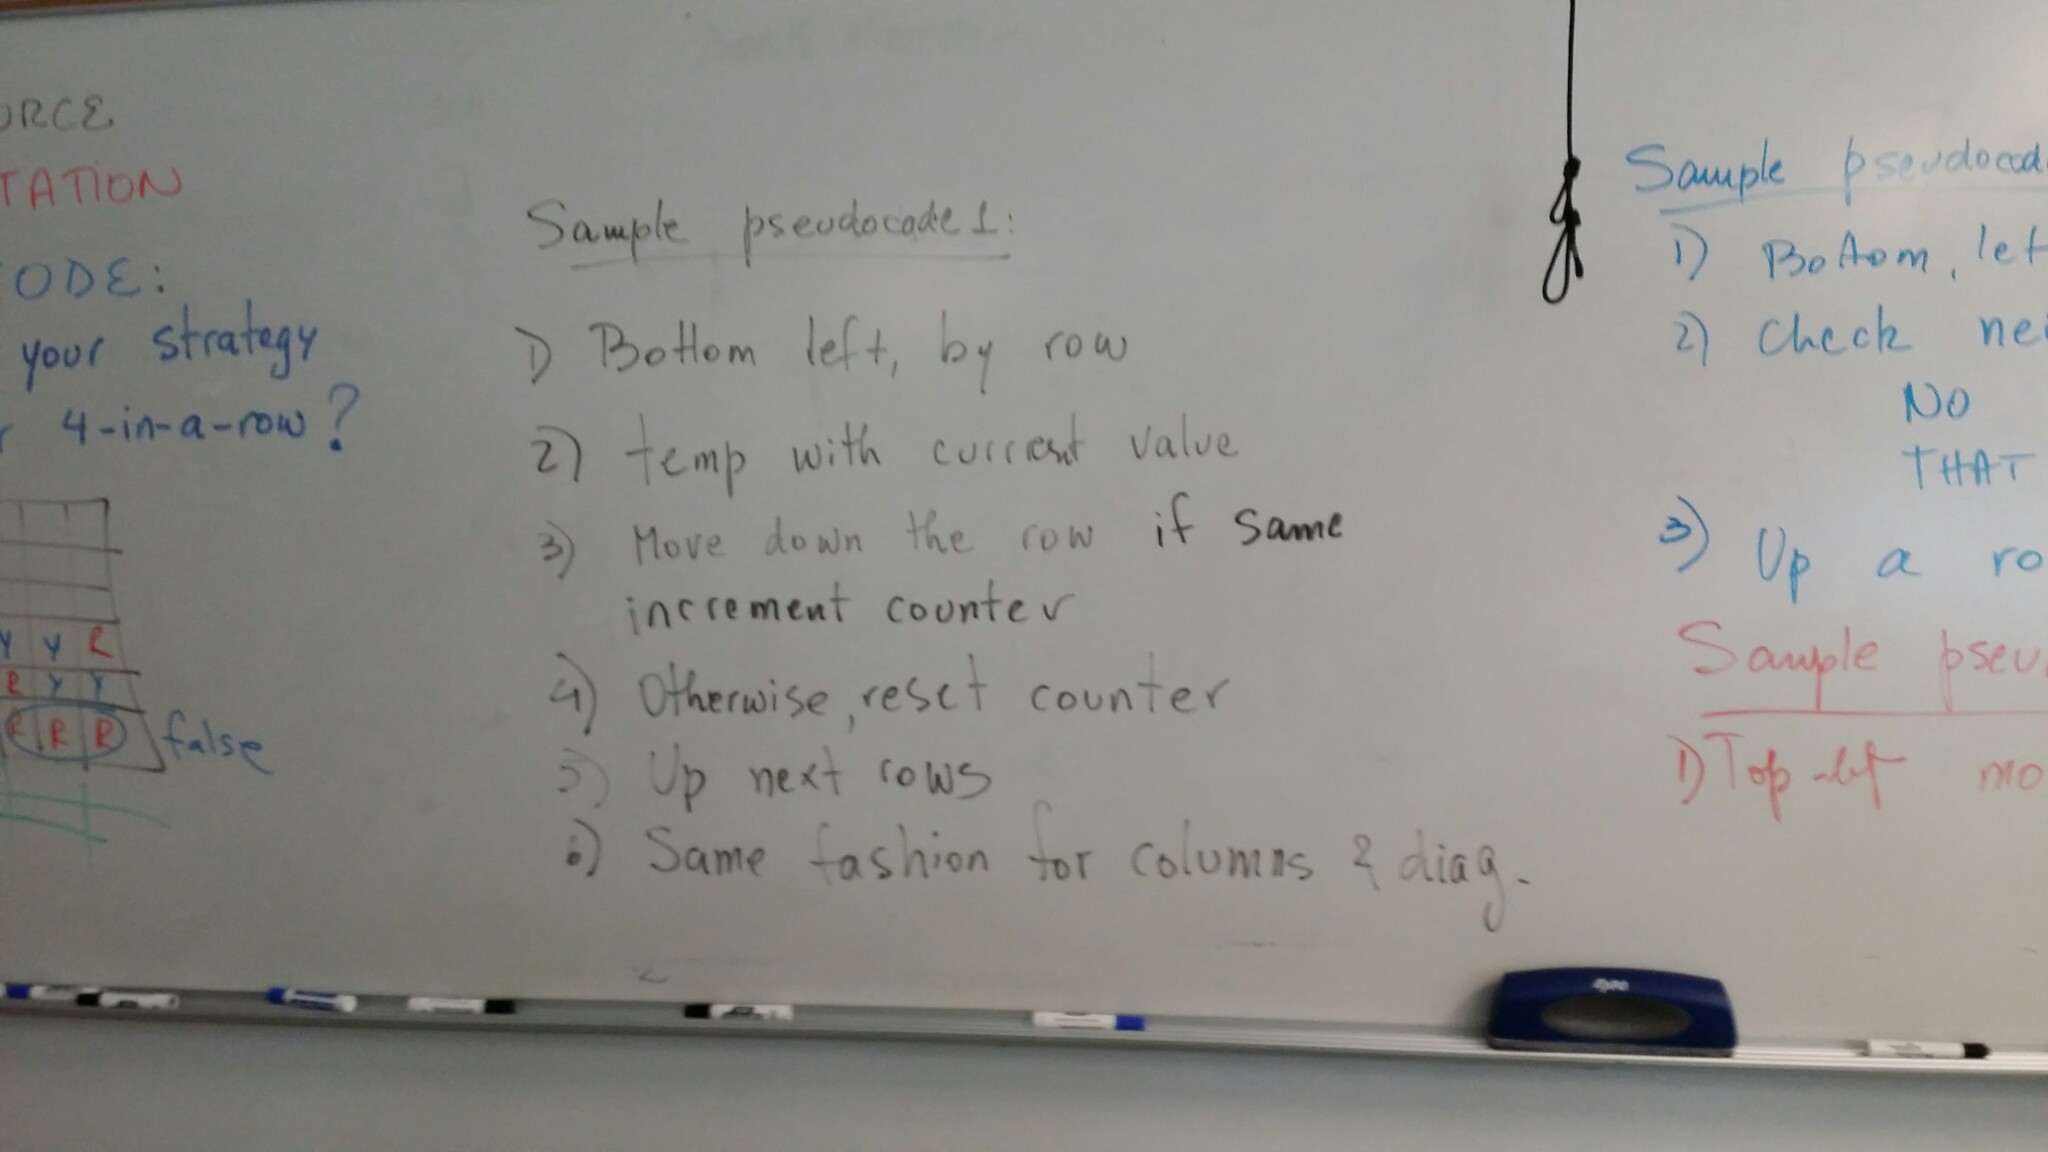 ORCE
TATION
ODE:
your strategy
4-in-a-row?
Y Y R
R Y Y
R R R false
Sample pseudocode 1:
1) Bottom left, by row
2) temp with current value
3) Move down the row if same
increment counter
4) Otherwise, reset counter
5) Up next rows
6) Same fashion for columns & diag.
Sample pseudocod
1) Bottom, left
2) Check nei
NO
THAT
3) Up a ro
Sample pseu
1) Top-left mo
expo